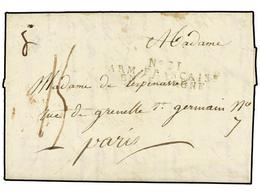 A Madame
Nº 21
ARM. FRANÇAISE
Madame de Lespinasse
rue de grenelle St. germain Nº
7
paris
15